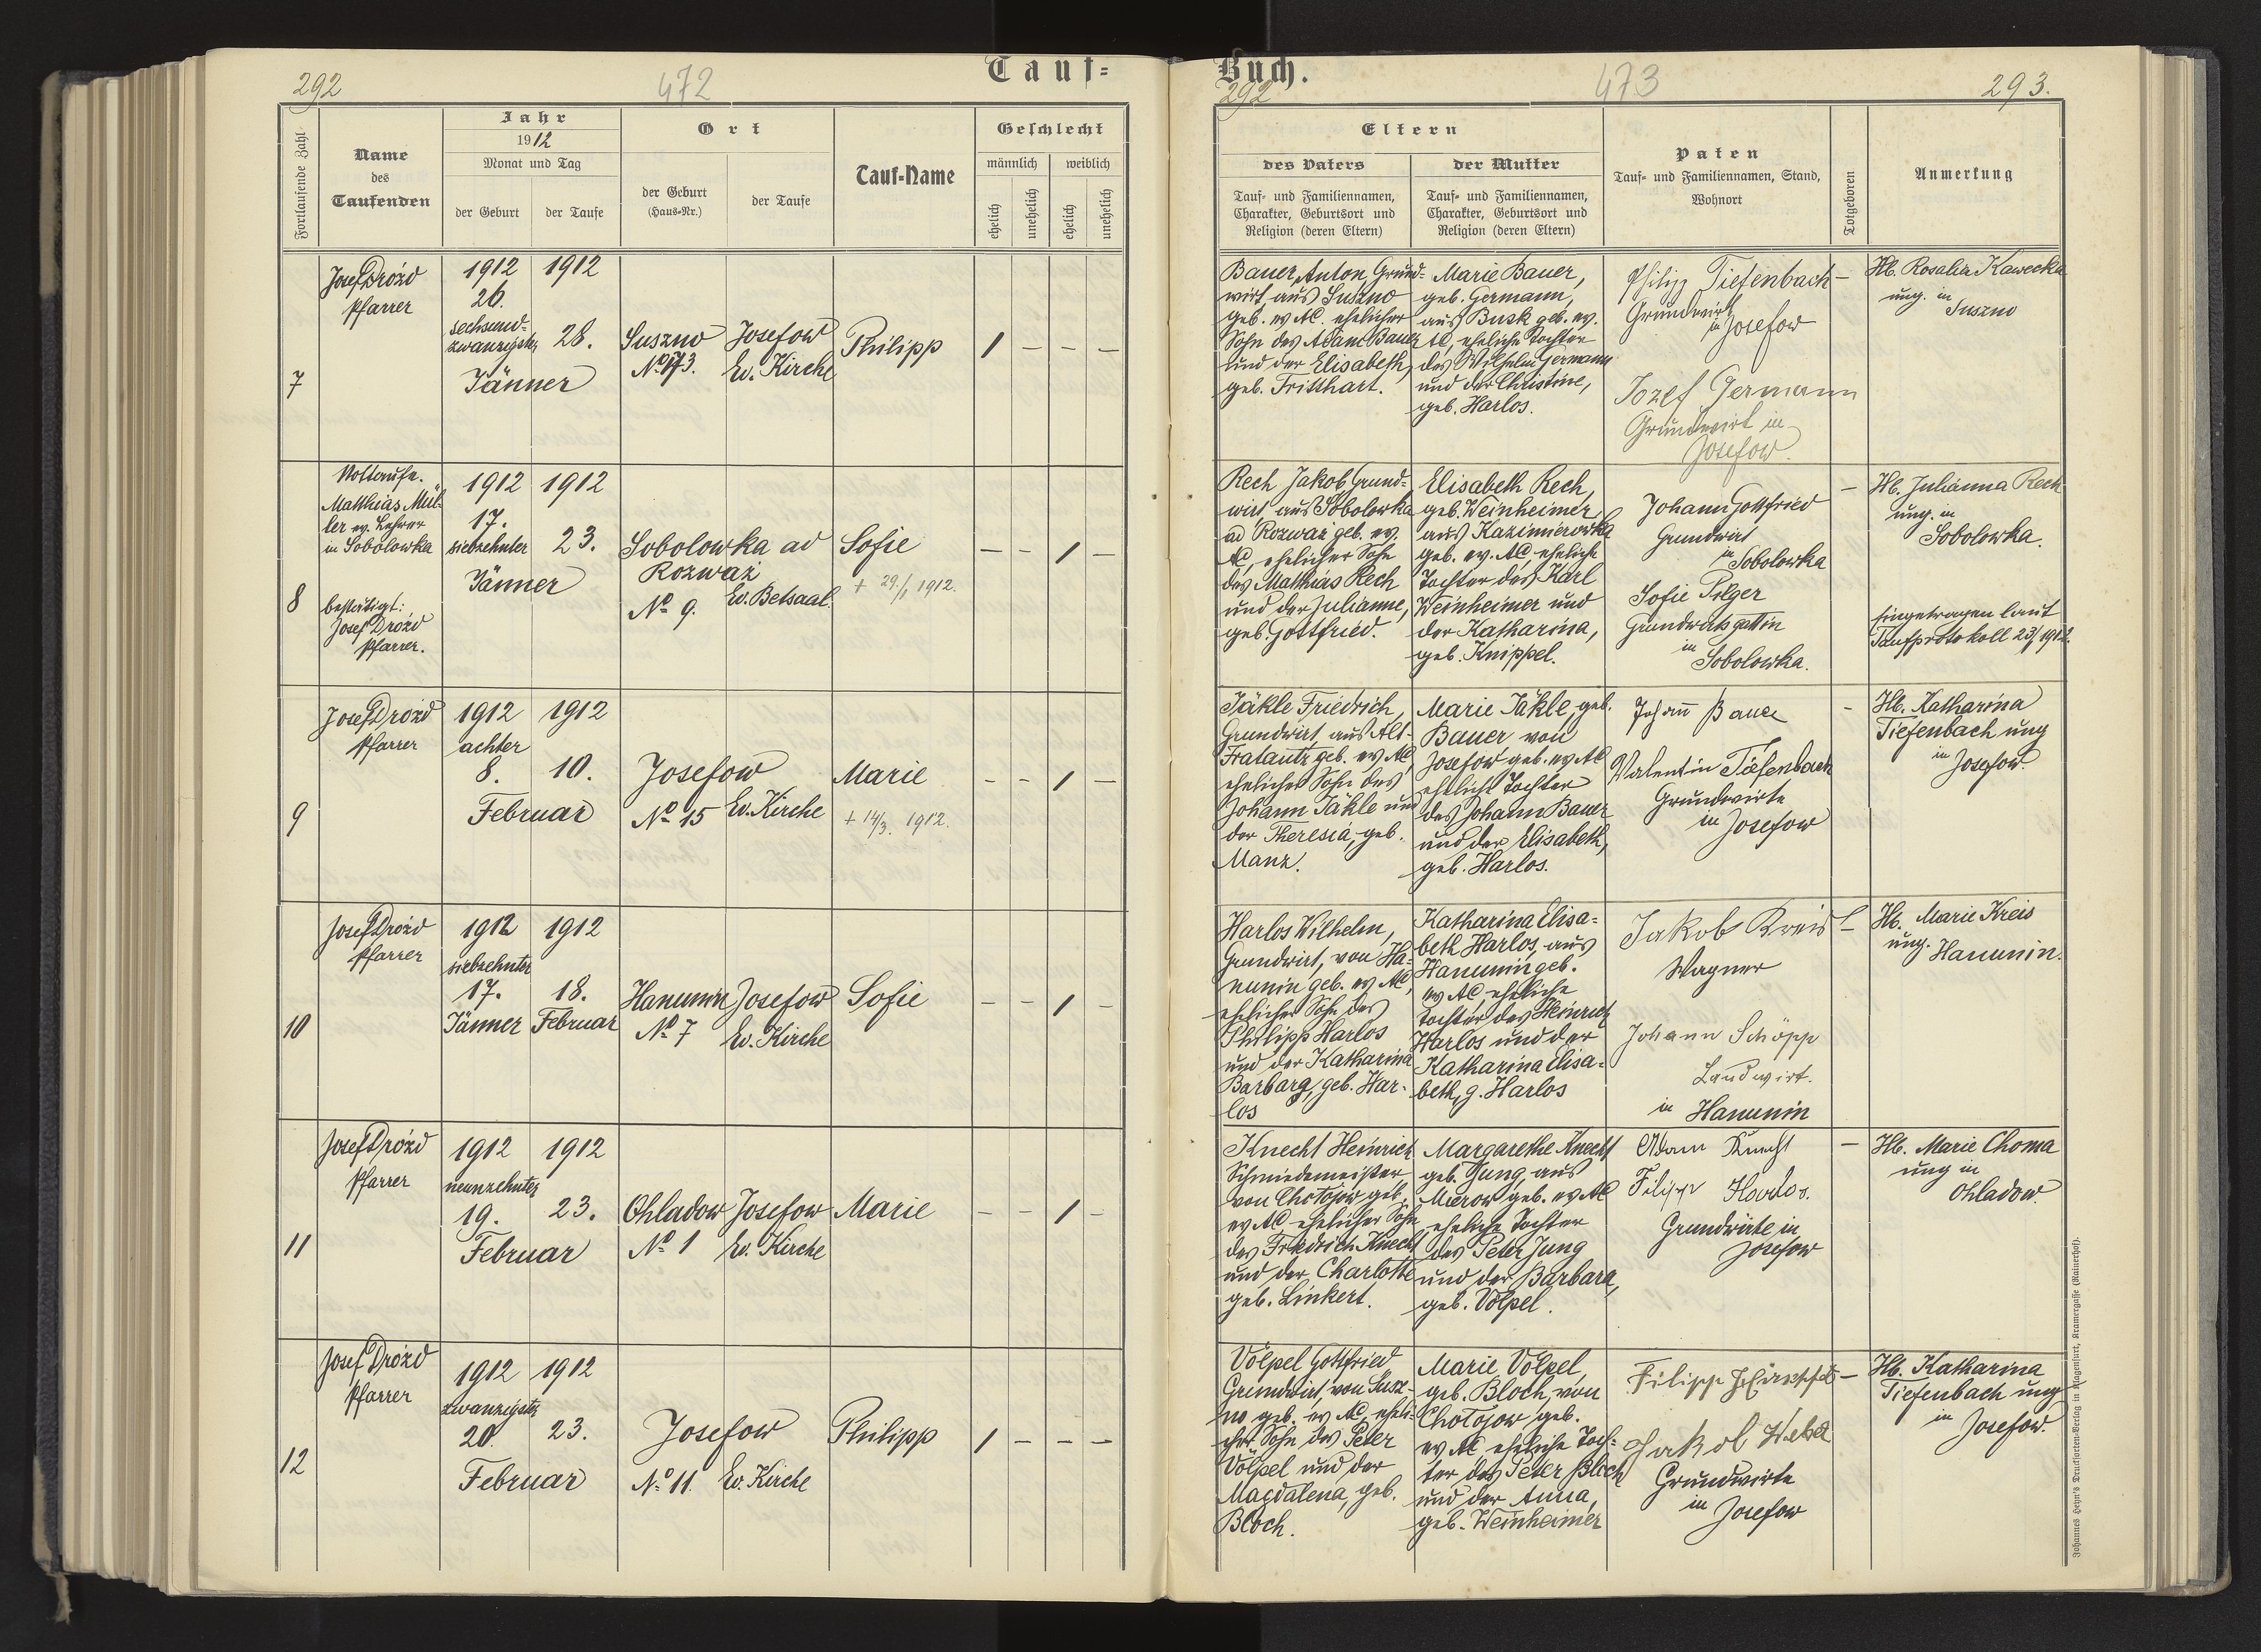 292
472
Tauf=
Fortlaufende Zahl
Name
des
Taufenden
Jahr
1912
Monat und Tag
der Geburt
der Taufe
Ort
der Geburt
(Haus=Nr.)
der Taufe
Tauf=Name
Geschlecht
männlich
weiblich
ehelich
unehelich
ehelich
unehelich
7
Josef Drozd
Pfarrer
1912
26.
sechsund=
zwanzigster
Jänner
1912
28.
Suszno
No 173.
Josefow
Ev. Kirche
Philipp
/ – – –
8
Nottaufe.
Matthias Mül=
ler ev. Lehrer
in Sobolowka
bestätigt:
Josef Drozd
Pfarrer.
1912
17.
siebzehnter
Jänner
1912
23.
Sobolowka ad
Rozważ
No 9.
Ev. Betsaal.
Sofie
+ 29./1 1912.
– – / –
9
Josef Drozd
Pfarrer
1912
achter
8.
Februar
1912
10.
Josefow
No 15
Ev. Kirche
Marie
+ 14/3. 1912.
– – / –
10
Josef Drozd
Pfarrer
1912
siebzehnter
17.
Jänner
1912
18.
Februar
Hanunin
No 7
Josefow
Ev. Kirche
Sofie
– – / –
11
Josef Drozd
Pfarrer
1912
neunzehnter
19.
Februar
1912
23.
Ohladow
No 1
Josefow
Ev. Kirche
Marie
– – / –
12
Josef Drozd
Pfarrer
1912
zwanzigster
20.
Februar
1912
23.
Josefow
No 11.
Ev. Kirche
Philipp
/ – – –
Buch.
292
473
293.
Eltern
des Vaters
Tauf= und Familiennamen,
Charakter, Geburtsort und
Religion (deren Eltern)
der Mutter
Tauf= und Familiennamen,
Charakter, Geburtsort und
Religion (deren Eltern)
Paten
Tauf= und Familiennamen, Stand,
Wohnort
Totgeboren
Anmerkung
Bauer, Anton, Grund=
wirt, aus Suszno
geb. ev AC. ehelicher
Sohn des Adam Bauer
und der Elisabeth,
geb. Fritthart.
Marie Bauer,
geb. Germann,
aus Busk geb. ev.
AC, eheliche Tochter
des Wilhelm Germann
und der Christine,
geb. Harlos.
Philipp Tiefenbach
Grundwirt
in Josefow
Jozef Germann
Grundwirt in
Josefow.
–
Hb. Rosalia Kawecka
ung. in
Suszno
Rech Jakob Grund=
wirt aus Sobolowka
ad Rozważ geb. ev.
AC, ehelicher Sohn
des Matthias Rech
und der Julianne,
geb. Gottfried.
Elisabeth Rech,
geb. Weinheimer,
aus Kazimierowka
geb. ev. AC, eheliche
Tochter des Karl
Weinheimer und
der Katharina,
geb. Knippel.
Johann Gottfried
Grundwirt
in Sobolowka
Sofie Pilger
Grundwirtsgattin
in
Sobolowka.
–
Hb. Julianna Rech
ung. in
Sobolowka.
Eingetragen laut
Taufprotokoll 23/1912.
Jäkle Friedrich,
Grundwirt aus Alt-
Fratautz geb. ev AC,
ehelicher Sohn des
Johann Jäkle und
der Theresia, geb.
Manz.
Marie Jäkle, geb.
Bauer von
Josefow geb. ev AC
eheliche Tochter
des Johann Bauer
und der Elisabeth,
geb. Harlos.
Johann Bauer
Valentin Tiefenbach
Grundwirte
in Josefow
–
Hb. Katharina
Tiefenbach ung
in Josefow.
Harlos Wilhelm,
Grundwirt, von Ha=
nunin geb. ev AC,
ehelicher Sohn des
Philipp Harlos
und der Katharina
Barbara, geb. Har-
los
Katharina Elisa=
beth Harlos, aus
Hanunin geb.
ev AC, eheliche
Tochter des Heinrich
Harlos und der
Katharina Elisa-
beth, g. Harlos
Jakob Kreis
Wagner
Johann Schöpp
Landwirt.
in Hanunin
–
Hb. Marie Kreis
ung. Hanunin.
Knecht Heinrich
Schmiedemeister
von Chotojow geb.
ev AC, ehelicher Sohn
des Friedrich Knecht
und der Charlotte
geb. Linkert.
Margarethe Knecht
geb. Jung, aus
Mierow geb. ev AC
eheliche Tochter
des Peter Jung
und der Barbara,
geb. Völpel.
Adam Knecht
Filipp Harlos.
Grundwirte in
Josefow
–
Hb. Marie Choma
ung in
Ohladow.
Völpel Gottfried
Grundwirt, von Susz-
no geb. ev AC, eheli=
cher Sohn des Peter
Völpel und der
Magdalena, geb.
Bloch.
Marie Völpel,
geb. Bloch, von
Chotojow geb.
ev AC eheliche Toch=
ter des Peter Bloch
und der Anna,
geb. Weinheimer
Filipp
Jakob
Grundwirte
in Josefow
–
Hb. Katharina
Tiefenbach ung
in Josefow.
Johannes Heyn's Drucksorten=Verlag in Klagenfurt, Kramergasse (Rainerhof).